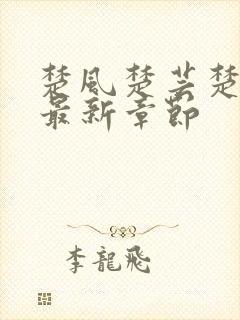 楚风楚芸楚
最新章节
李龍飛